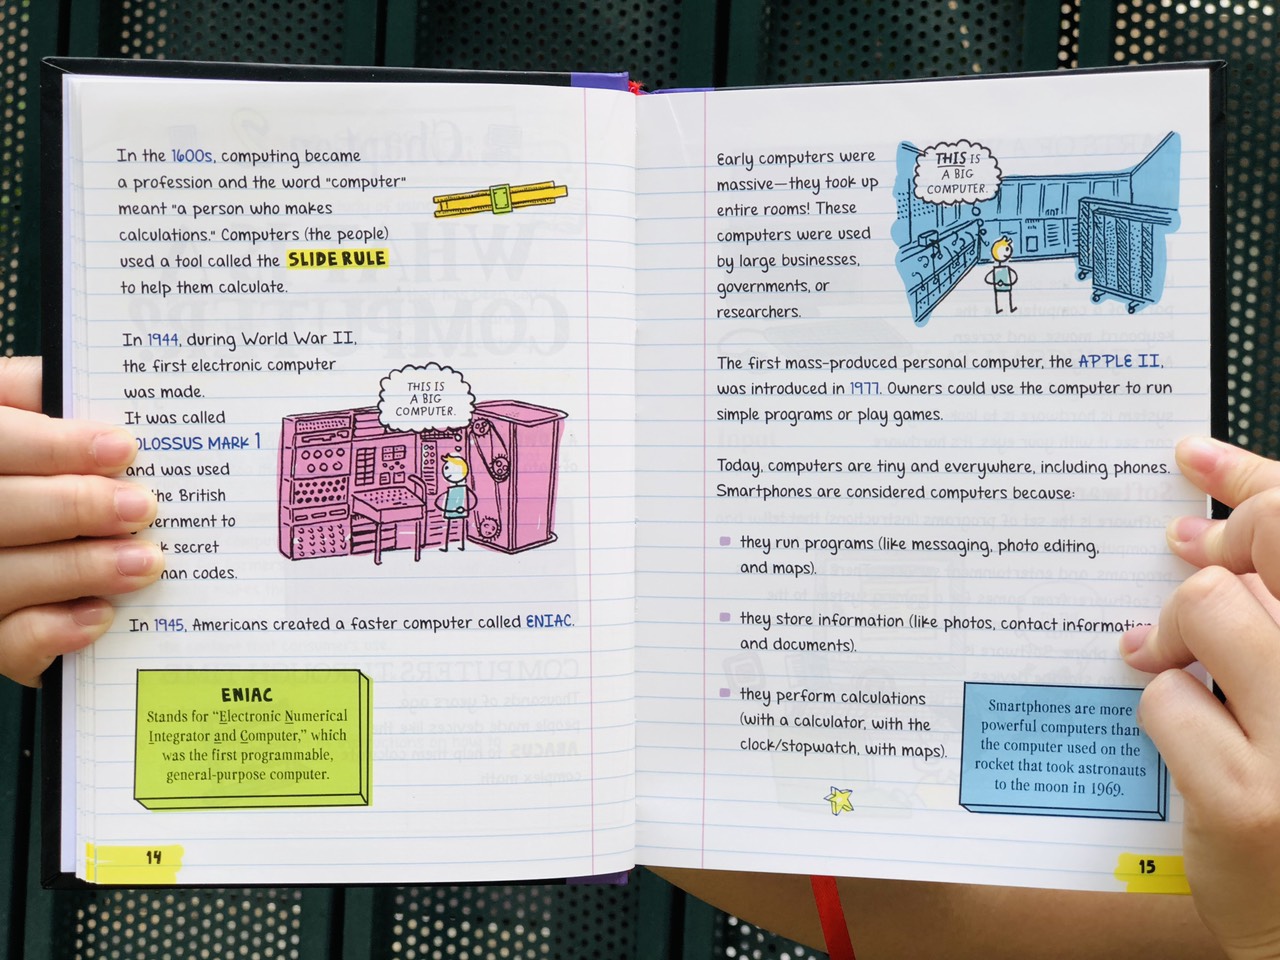 In the 1600s, computing became
a profession and the word "computer"
meant "a person who makes
calculations." Computers (the people)
used a tool called the SLIDE RULE
to help them calculate.
In 1944, during World War II,
the first electronic computer
was made.
It was called
OLOSSUS MARK 1
and was used
he British
vernment to
k secret
man codes.
THIS IS
A BIG
COMPUTER.
In 1945, Americans created a faster computer called ENIAC.
ENIAC
Stands for "Electronic Numerical
Integrator and Computer," which
was the first programmable,
general-purpose computer.
14
Early computers were
massive—they took up
entire rooms! These
computers were used
by large businesses,
governments, or
researchers.
THIS IS
A BIG
COMPUTER.
The first mass-produced personal computer, the APPLE II,
was introduced in 1977. Owners could use the computer to run
simple programs or play games.
Today, computers are tiny and everywhere, including phones.
Smartphones are considered computers because:
they run programs (like messaging, photo editing,
and maps).
they store information (like photos, contact information,
and documents).
they perform calculations
(with a calculator, with the
clock/stopwatch, with maps).
Smartphones are more
powerful computers than
the computer used on the
rocket that took astronauts
to the moon in 1969.
15